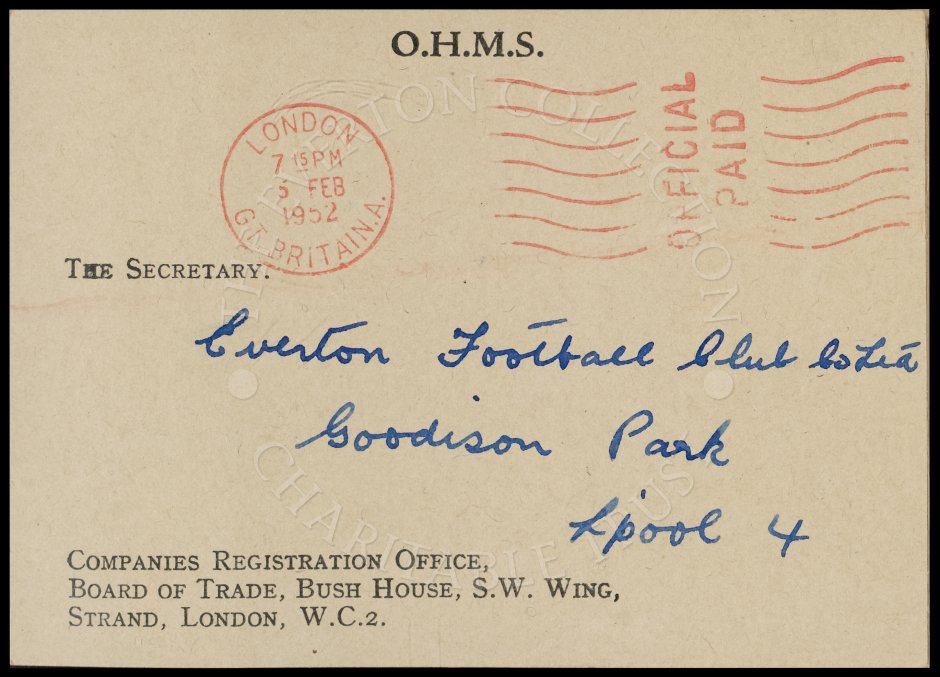 O.H.M.S.
LONDON
7 15 PM
5 FEB
1952
GT. BRITAIN. A.
OFFICIAL
PAID
THE SECRETARY.
Everton Football Club Co Ltd
Goodison Park
L'pool 4
COMPANIES REGISTRATION OFFICE,
BOARD OF TRADE, BUSH HOUSE, S.W. WING,
STRAND, LONDON, W.C.2.
THE EVERTON COLLECTION
CHARITABLE TRUST